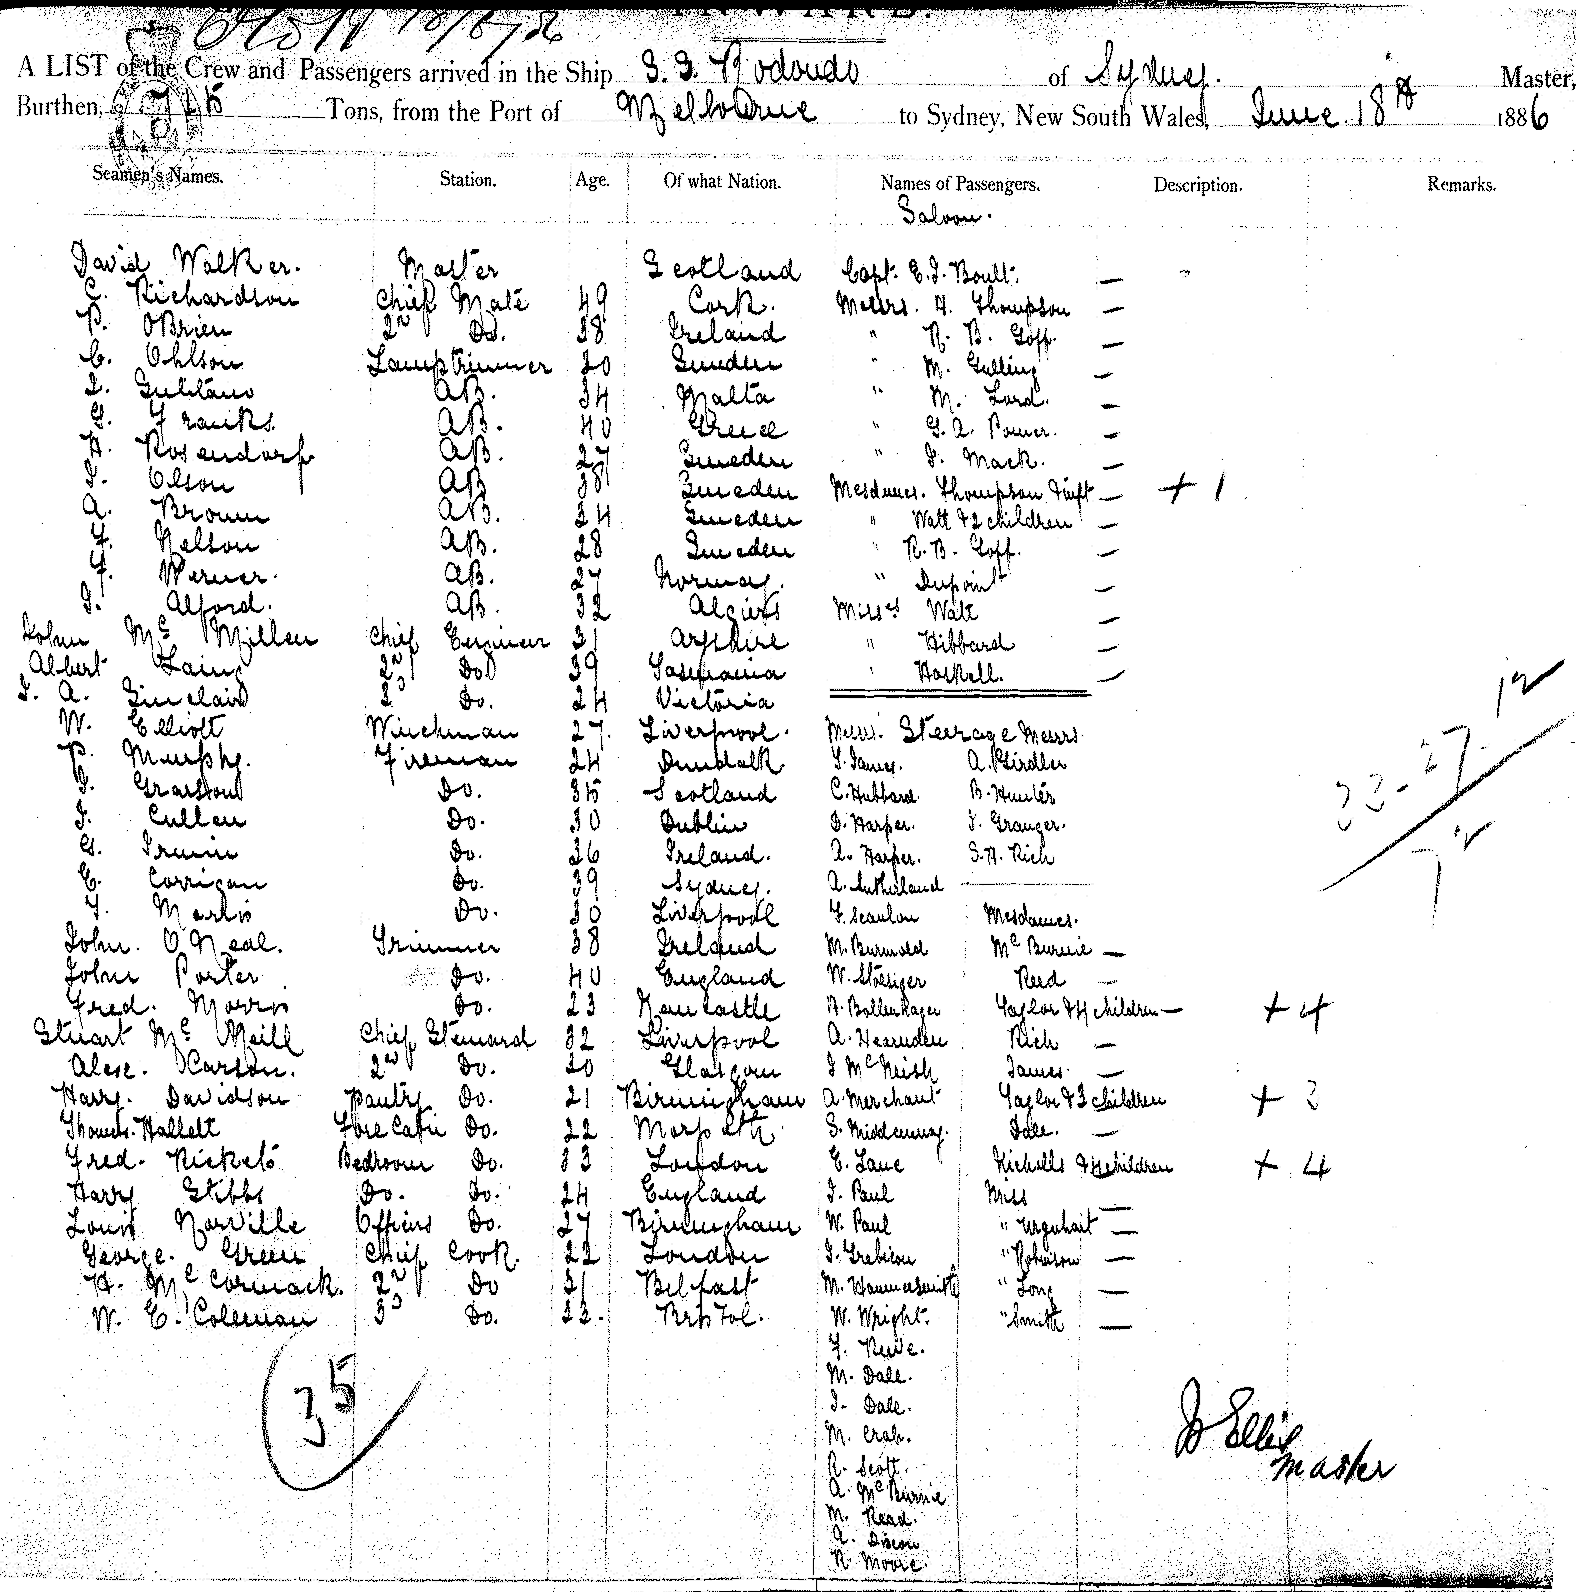 INWARD.
18/6/86
A LIST of the Crew and Passengers arrived in the Ship S. S. Rodondo of Sydney. Master,
Burthen, 725 Tons, from the Port of Melbourne to Sydney, New South Wales, June 18th 1886
Seamen's Names. Station. Age. Of what Nation. Names of Passengers. Description. Remarks.
Saloon.
David Walker. Master Scotland Capt. E. J. Boult. —
C. Richardson Chief Mate 49 Cork. Messrs. A. Thompson —
P. OBrien 2nd Do. 38 Ireland " R. B. Goff. —
C. Ohlson Lamptrimmer 30 Sweden " M. Gulling —
AB. 34 Malta " M. Lord. —
G. Franks. AB. 40 Greece " G. A. Power. —
H. Rosendorf AB. 27 Sweden " J. Mack. —
J. Olson AB 38 Sweden Mesdames. Thompson & inft — + 1
A. Brown AB. 34 Sweden " Watt & 2 children —
F. Nelson AB. 28 Sweden " R. B. Goff. —
F. Werner. AB. 27 Norway. " Dupoint —
J. Alford. AB. 32 Algiers Misses Watt —
John Mc Millen Chief Engineer 31 Ayrshire " Hibbard —
Albert Laing 2nd Do 39 Tasmania " Haskell. —
J. A. Sinclair 3 Do. 24 Victoria
W. Elliott Winchman 27. Liverpool. Messrs. Steerage Messrs
P. Murphy. Fireman 24 Dundalk T. James. A. Girdler
Do. 35 Scotland C. Hubbard B. Hunter
J. Cullen Do. 30 Dublin D. Harper. J. Granger.
G. Irwin Do. 36 Ireland. A. Harper. S. H. Rich
C. Corrigan Do. 39 Sydney. A. Sutherland
F. Martin Do. 30 Liverpool F. Scanlon Mesdames.
John. O Neal. Trimmer 38 Ireland M. Burmold Mc Burnie —
John Porter Do. 40 England W. Stenger Reed —
Fred. Morris Do. 23 Newcastle Taylor & 4 children — + 4
Stuart Mc Neill Chief Steward 32 Liverpool A. Hearnden Rich —
Alex. Carson. 2nd Do. 30 Glasgow J McNeish James. —
Harry. Davidson Pantry Do. 21 Birmingham A. Merchant Taylor & 3 children + 3
Thomas. Hallett Fore Cabin Do. 22 Morpeth S. Middenway. Dale. —
Fred. Rickets Bedroom Do. 33 London E. Lane Nicholls & 4 children + 4
Harry Stibbs Do. Do. 24 England J. Paul Miss —
Louis Norville Officers Do. 27 Birmingham W. Paul " Urquhart —
George. Green Chief Cook. 22 London " Robinson —
H. Mc Cormack. 2nd Do 31 Belfast M. Hammersmith " Long —
W. E. Coleman 3 Do. 23. Bristol. W. Wright. " Smith —
F. Reeve.
M. Dale.
J. Dale.
M. Crab.
R. Scott.
A. Mc Burnie
M. Read.
A. Dixon
R. Moore.
35
33 - 27
J Ellis
Master